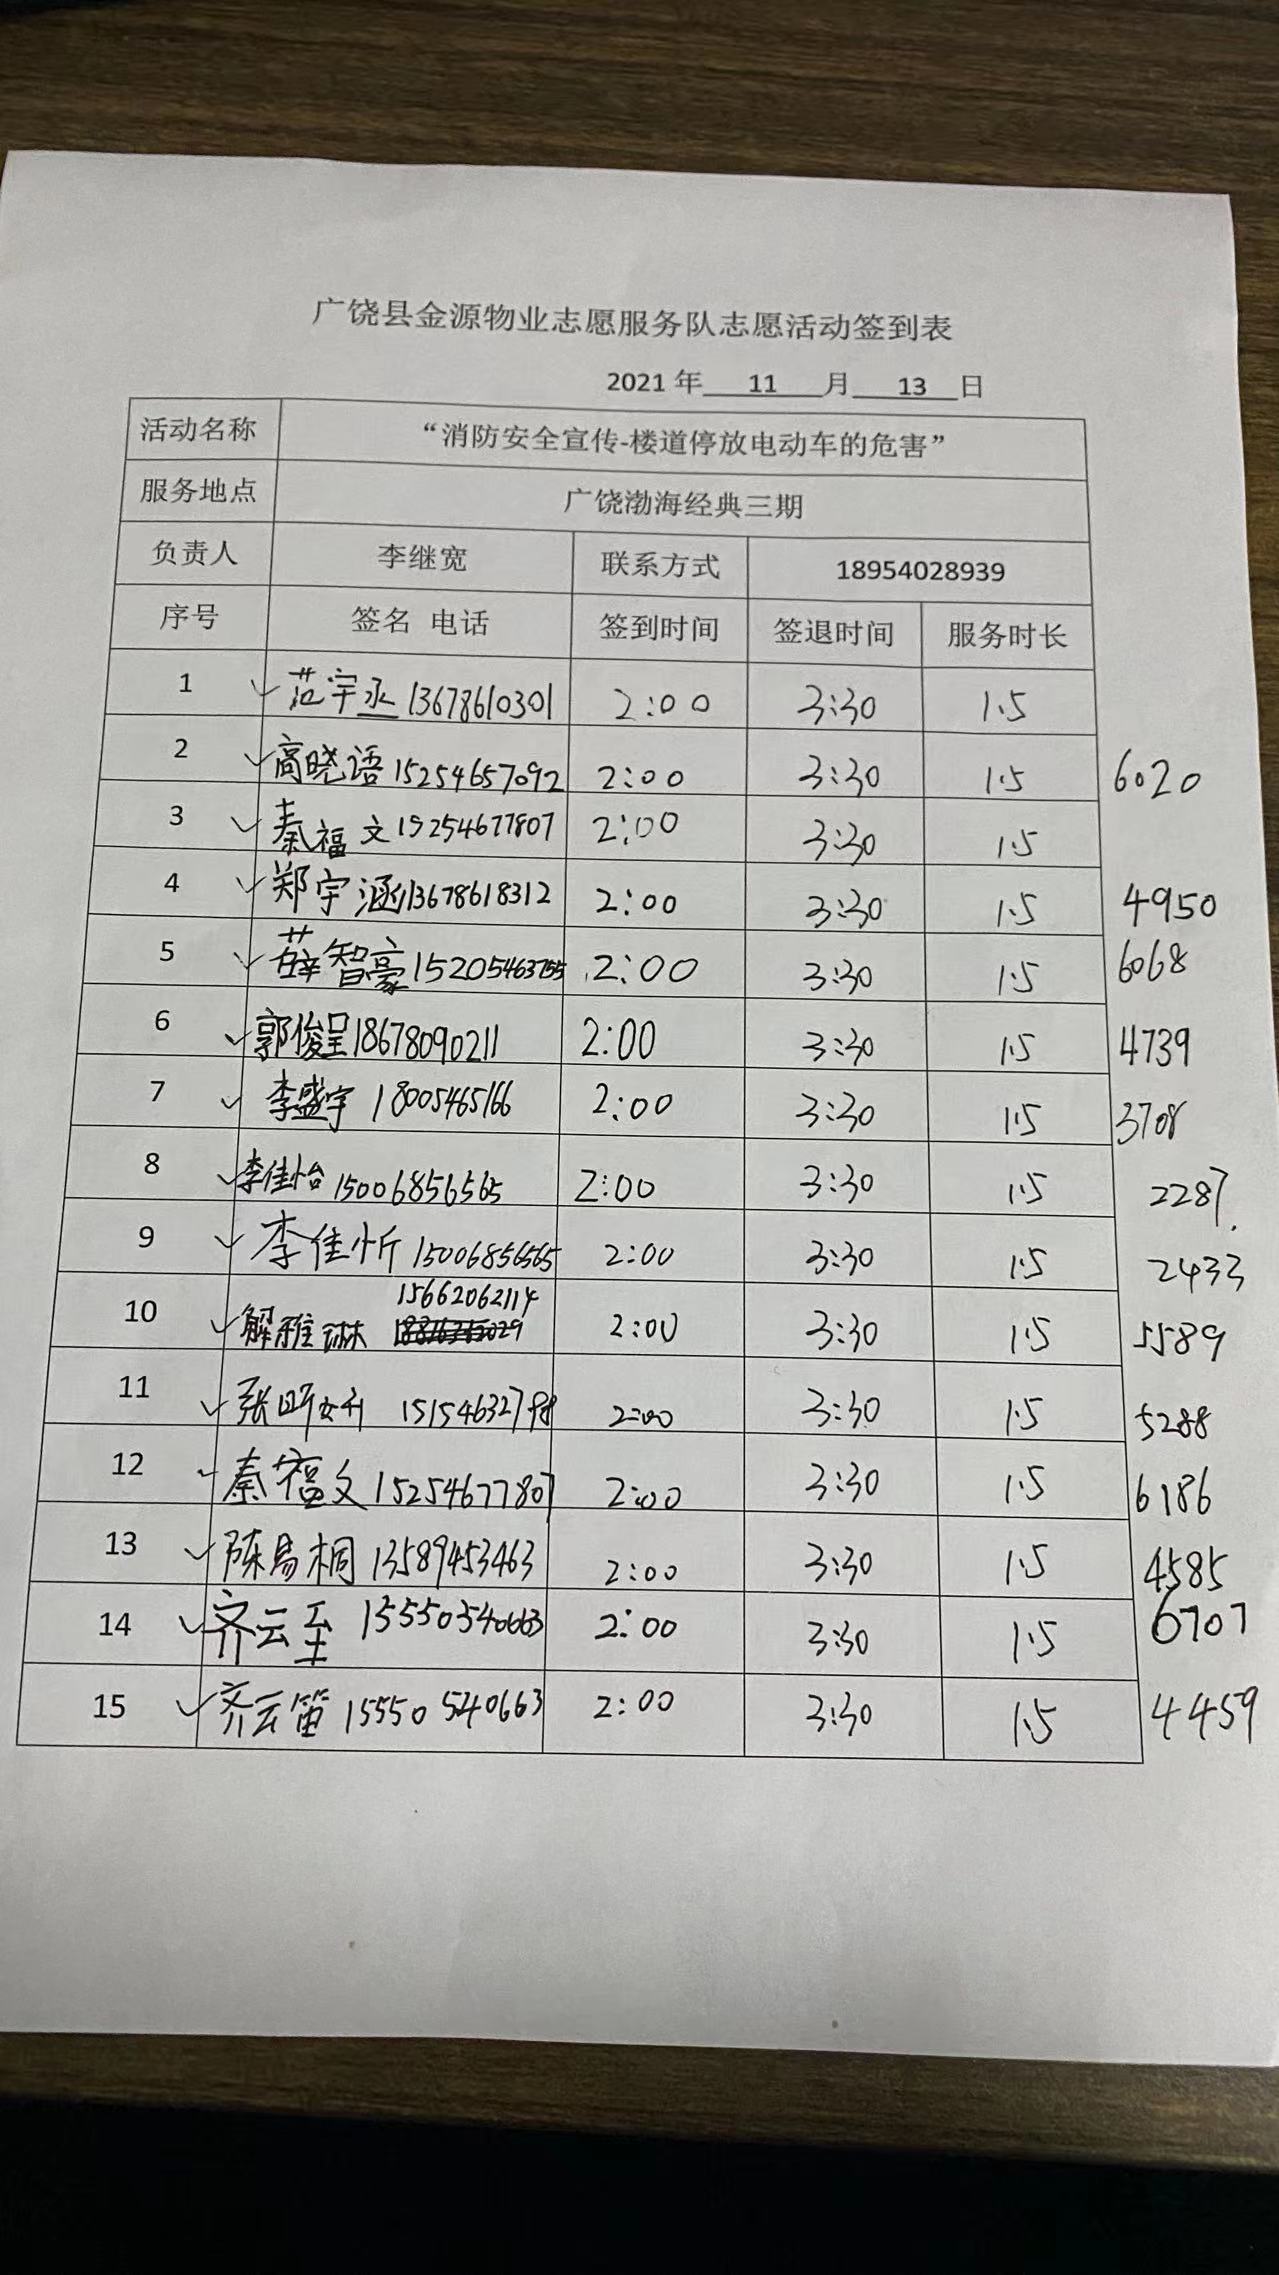 广饶县金源物业志愿服务队志愿活动签到表
2021 年 11 月 13 日
活动名称 “消防安全宣传-楼道停放电动车的危害”
服务地点 广饶渤海经典三期
负责人 李继宽 联系方式 18954028939
序号 签名 电话 签到时间 签退时间 服务时长
1 范宇丞 13678610301 2:00 3:30 1.5
2 高晓语 15254657092 2:00 3:30 1.5 6020
3 秦福文 15254677807 2:00 3:30 1.5
4 郑宇涵 13678618312 2:00 3:30 1.5 4950
5 薛智豪 15205463755 2:00 3:30 1.5 6068
6 郭俊呈 18678090211 2:00 3:30 1.5 4739
7 李盛宇 18005465166 2:00 3:30 1.5 3708
8 李佳怡 15006856565 2:00 3:30 1.5 2287.
9 李佳忻 15006856565 2:00 3:30 1.5 2433
15662062114
10 解雅琳 2:00 3:30 1.5 5589
11 张昕 2:00 3:30 1.5 5288
12 秦福文 15254677807 2:00 3:30 1.5 6186
13 陈易桐 13589453463 2:00 3:30 1.5 4585
14 齐云至 15550540663 2:00 3:30 1.5 6707
15 齐云笛 15550540663 2:00 3:30 1.5 4459